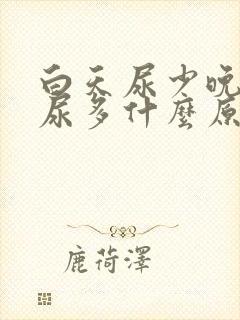 白天尿少晚
尿多什麼原
鹿荷澤